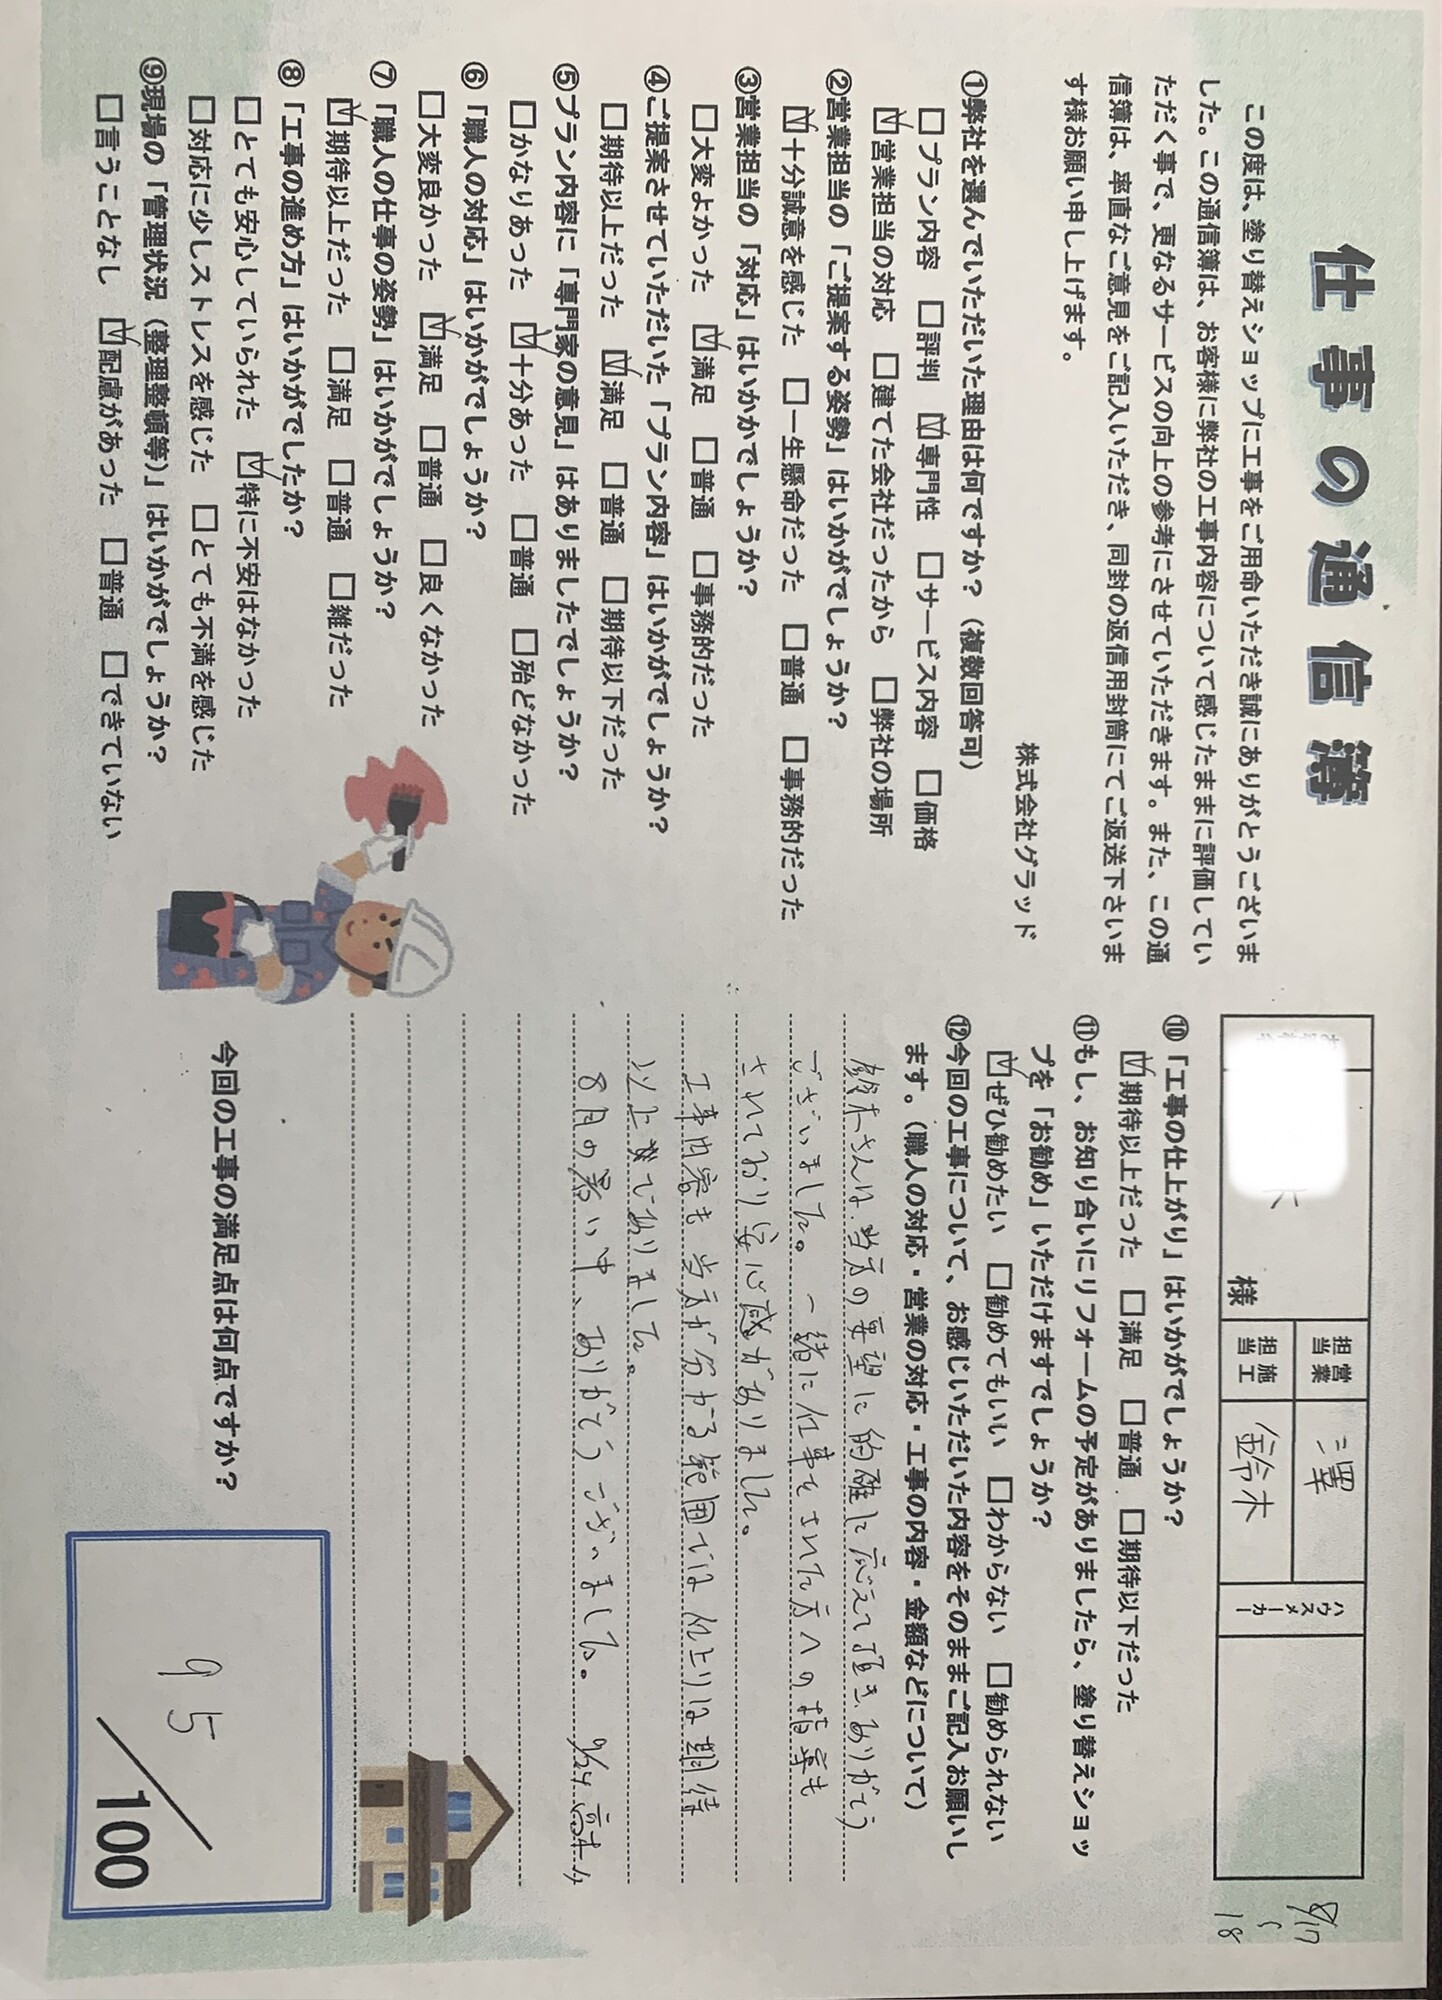 仕事の通信簿
この度は、塗り替えショップに工事をご用命いただき誠にありがとうございま
した。この通信簿は、お客様に弊社の工事内容について感じたままに評価してい
ただく事で、更なるサービスの向上の参考にさせていただきます。また、この通
信簿は、率直なご意見をご記入いただき、同封の返信用封筒にてご返送下さいま
す様お願い申し上げます。
株式会社グラッド
①弊社を選んでいただいた理由は何ですか？（複数回答可）
□プラン内容 □評判 ☑専門性 □サービス内容 □価格
☑営業担当の対応 □建てた会社だったから □弊社の場所
②営業担当の「ご提案する姿勢」はいかがでしょうか？
☑十分誠意を感じた □一生懸命だった □普通 □事務的だった
③営業担当の「対応」はいかかでしょうか？
□大変よかった ☑満足 □普通 □事務的だった
④ご提案させていただいた「プラン内容」はいかがでしょうか？
□期待以上だった ☑満足 □普通 □期待以下だった
⑤プラン内容に「専門家の意見」はありましたでしょうか？
□かなりあった ☑十分あった □普通 □殆どなかった
⑥「職人の対応」はいかがでしょうか？
□大変良かった ☑満足 □普通 □良くなかった
⑦「職人の仕事の姿勢」はいかがでしょうか？
☑期待以上だった □満足 □普通 □雑だった
⑧「工事の進め方」はいかがでしたか？
□とても安心していられた ☑特に不安はなかった
□対応に少しストレスを感じた □とても不満を感じた
⑨現場の「管理状況（整理整頓等）」はいかがでしょうか？
□言うことなし ☑配慮があった □普通 □できていない
様
営業担当
澤
施工担当
鈴木
ハウスメーカー
8/17
〜
18
⑩「工事の仕上がり」はいかがでしょうか？
☑期待以上だった □満足 □普通 □期待以下だった
⑪もし、お知り合いにリフォームの予定がありましたら、塗り替えショッ
プを「お勧め」いただけますでしょうか？
☑ぜひ勧めたい □勧めてもいい □わからない □勧められない
⑫今回の工事について、お感じいただいた内容をそのままご記入お願いし
ます。（職人の対応・営業の対応・工事の内容・金額などについて）
鈴木さんは、当方の要望に的確に応えて頂きありがとう
ございました。一緒に仕事をされた方への指導も
されており安心感がありました。
工事内容も当方が分かる範囲では仕上りは期待
以上でありました。
8月の暑い中、ありがとうございました。 9/24
今回の工事の満足点は何点ですか？
95
/100